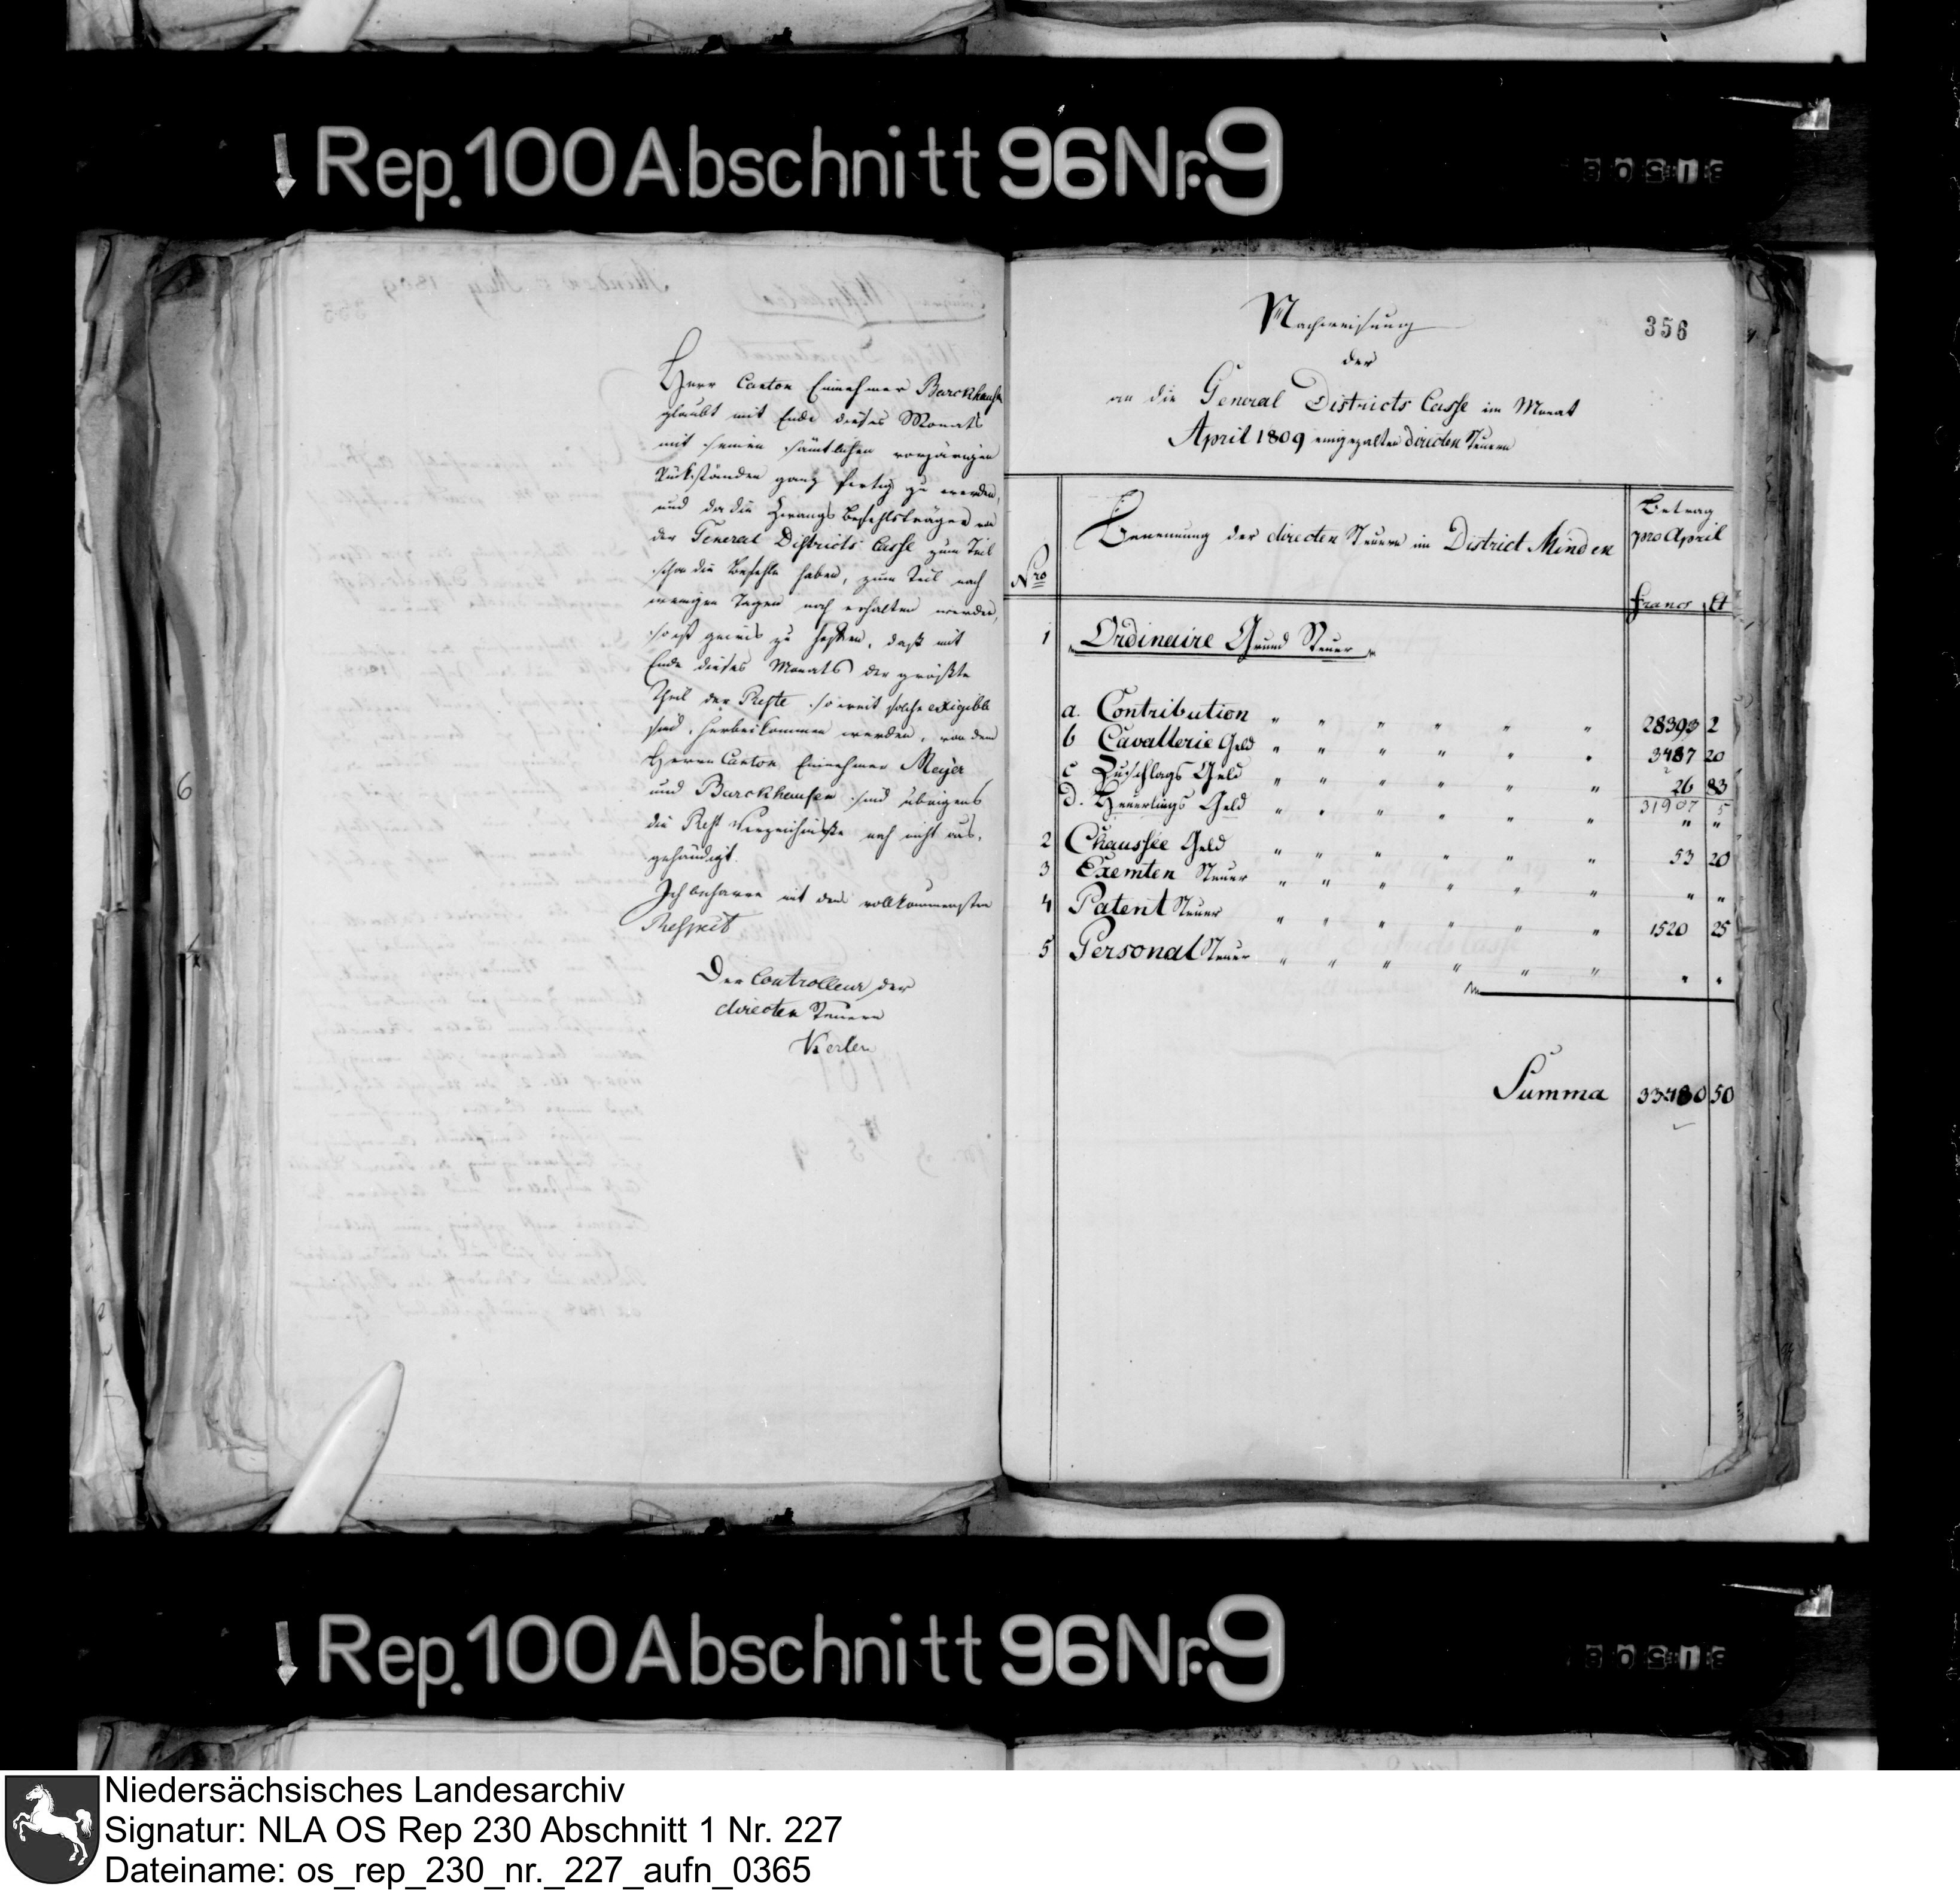 Rep. 100 Abschnitt 96 Nr. 9
Herr Canton Einnehmer Barckhausen
glaubt mit Ende dieses Monats
mit seinen sämtlichen vorjärigen
Rükständen ganz fertig zu werden,
und da die Zwangs Befehlsträger von
der General Districts Casse zum Teil
schon die Befehle haben, zum Teil nach
wenigen Tagen noch erhalten werden,
so ist gewis zu hoffen, daß mit
Ende dieses Monats der größte
Theil der Reste so weit solche exigible
sind, herbeikommen werden, von dem
Herrn Canton Einnehmer Meyer
und Barckhausen sind übrigens
die Rest Verzeichniße noch nicht aus,
gehändigt.
Ich beharre mit dem vollkommensten
Respect
Der Controlleur der
directen Steuern
Kerlen
6
356
Nachweisung
der
an die General Districts Casse im Monat
April 1809 eingezalten directen Steuern
Nro
Benennung der directen Steuern im District Minden
Betrag
pro April
francs Ct
1 Ordinaire Grund Steuer
a. Contribution " " " " " " 28393 2
b Cavallerie Geld " " " " " " 3487 20
c Zuschlags Geld " " " " " " 26 83
31907 5
d. Heuerlings Geld " " " " " " " "
2 Chaussée Geld " " " " " " 53 20
3 Exemten Steuer " " " " " " " "
4 Patent Steuer " " " " " " 1520 25
5 Personal Steuer " " " " " " " "
Summa 33480 50
Rep. 100 Abschnitt 96 Nr. 9
Niedersächsisches Landesarchiv
Signatur: NLA OS Rep 230 Abschnitt 1 Nr. 227
Dateiname: os_rep_230_nr._227_aufn_0365